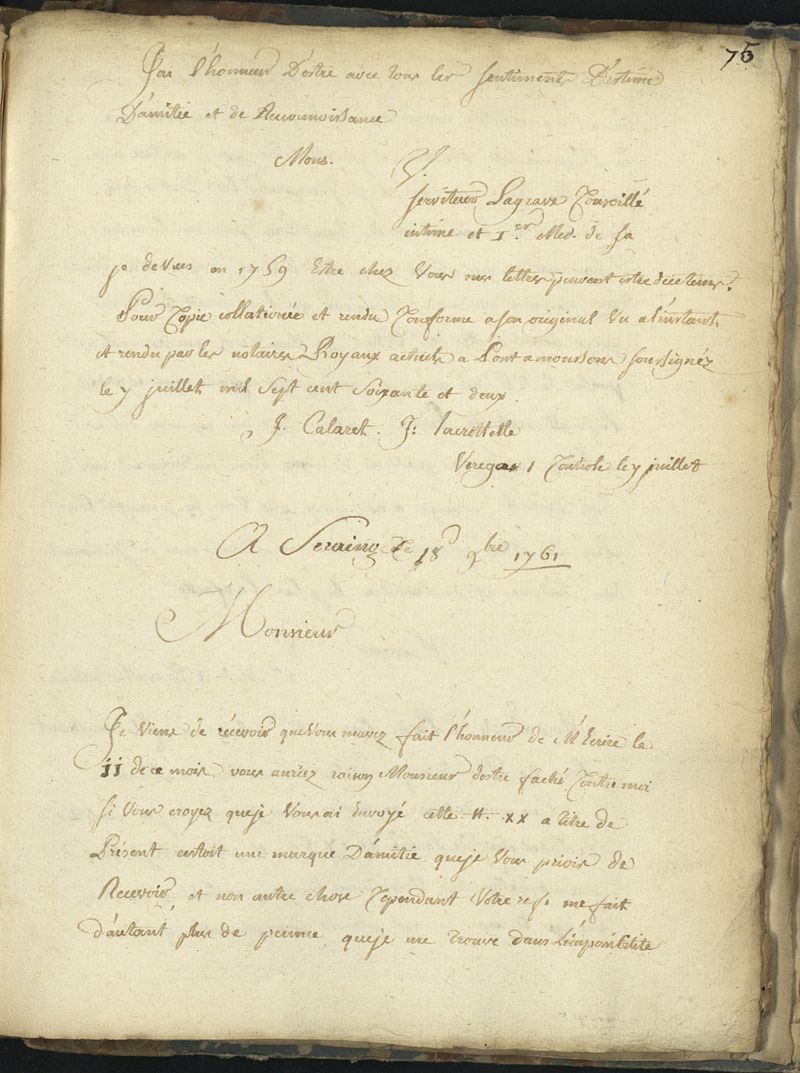 75
J'ai l'honneur D'estre avec tous les sentiments D'estime
D'amitié et de Reconnoissance
Mons. V.
serviteur Lagrave Conseillé
intime et 1.er Med. de sa
je devais en 1759 Estre chez Vous mes lettres peuvent
Pour Copie collationée et rendu Conforme a son original Vu a l'instant
et rendu par les notaires Royaux a Pont a mousson soussignéz
le 7 juillet mil sept cent soixante et deux.
J. Calaret. J: Lacretelle
1 Controle le 7 juillet
A Seraing Le 18 9bre 1761
Monsieur
Je viens de récevoir que Vous mavez fait l'honneur de M'Ecrire le
11 de ce mois vous auriez raison Monsieur destre faché Contre moi
si Vous croyez que je Vous ai Envoyé cette tt. xx a titre de
Présent cestoit une marque D'amitié que je Vous priois de
Recevoir, et non autre chose Cependant Votre refs. me fait
d'autant plus de peinne que je me trouve dans L'inpossibilite